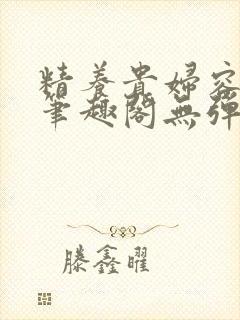 精养貴婦容
筆趣閣無彈
滕鑫曜